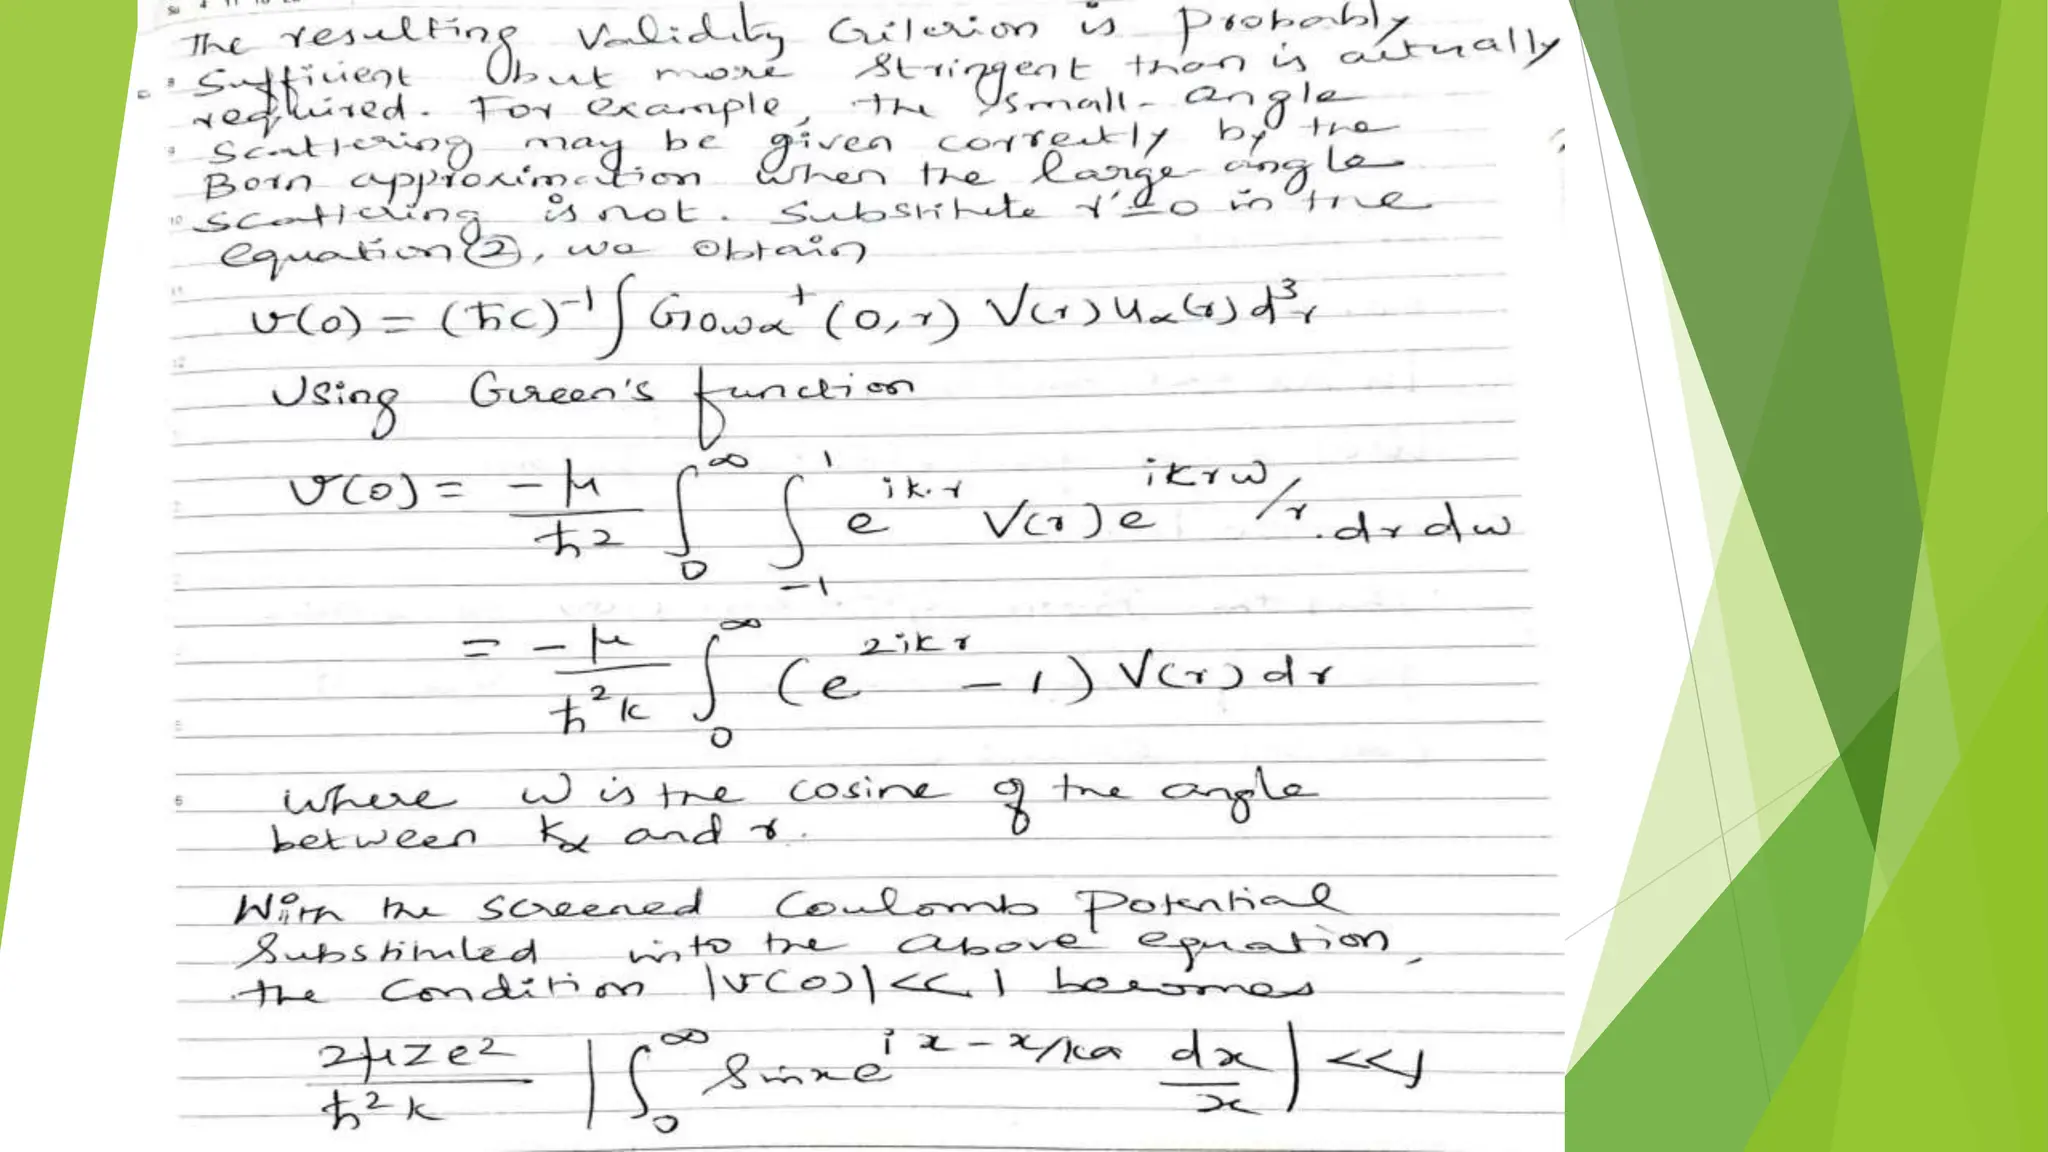 The resulting validity criterion is probably
sufficient but more stringent than is actually
required. For example, the small-angle
scattering may be given correctly by the
Born approximation when the large-angle
scattering is not. Substitute r'=0 in the
equation ②, we obtain
v(0) = (ħc)⁻¹ ∫ G₀ωα⁺ (0,r) V(r) uα(r) d³r
Using Green's function
v(0) = -μ/ħ² ∫₀^∞ ∫₋₁^1 e^{ik.r} V(r) e^{ikrω}/r . dr dω
= -μ/ħ²k ∫₀^∞ (e^{2ikr} - 1) V(r) dr
where ω is the cosine of the angle
between kα and r.
With the screened Coulomb Potential
Substituted into the above equation,
the condition |v(0)| << 1 becomes
2μZe²/ħ²k | ∫₀^∞ sinx e^{ix - x/ka} dx/x | << 1